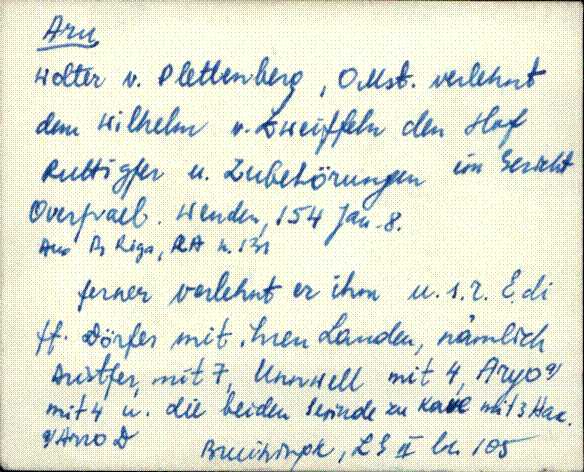 Aru
Wolter v. Plettenberg, OMst. verlehnt
dem Wilhelm v. Zweiffeln den Hof
Ruttigfer u. Zubehörungen im Gericht
Overpael. Wenden, 154 Jan. 8.
Aus Br Riga, RA n. 131
ferner verlehnt er ihm u. s. r. E. di
ff. Dörfer mit ihren Landen, nämlich
Austfer, mit 7, Unnwell mit 4, Aryo a)
mit 4 u. die beiden Gesinde zu Kave mit 3 Hak.
a) Arro D
LG II n. 105